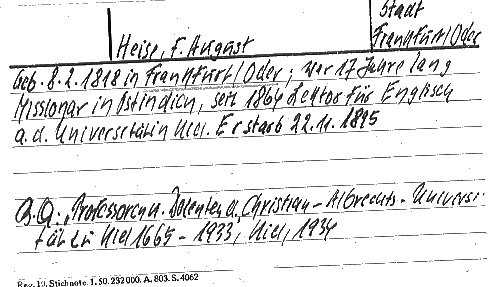 Stadt
Heise, F. August Frankfurt/Oder
Geb. 8.2.1818 in Frankfurt/Oder; war 17 Jahre lang
Missionar in Ostindien, seit 1864 Lektor für Englisch
a.d. Universität in Kiel. Er starb 22.11.1895
B.Q.: Professoren u. Dozenten d. Christian-Albrechts-Universi-
tät zu Kiel 1665 - 1933, Kiel, 1934
Reg. 10. Stichnote. 1. 50. 232000. A. 803. S. 4062